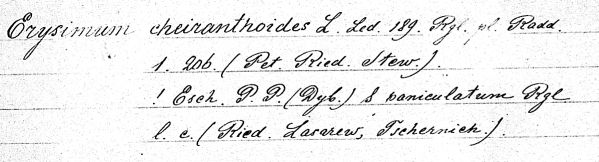 Erysimum cheiranthoides L. Led. 189. Rgl. pl. Radd.
1. 206. (Pet. Ried. Stew.).
! Esch. P. P. (Dyb.) β paniculatum Rgl
l. c. (Ried. Lasarew, Tschernich.).